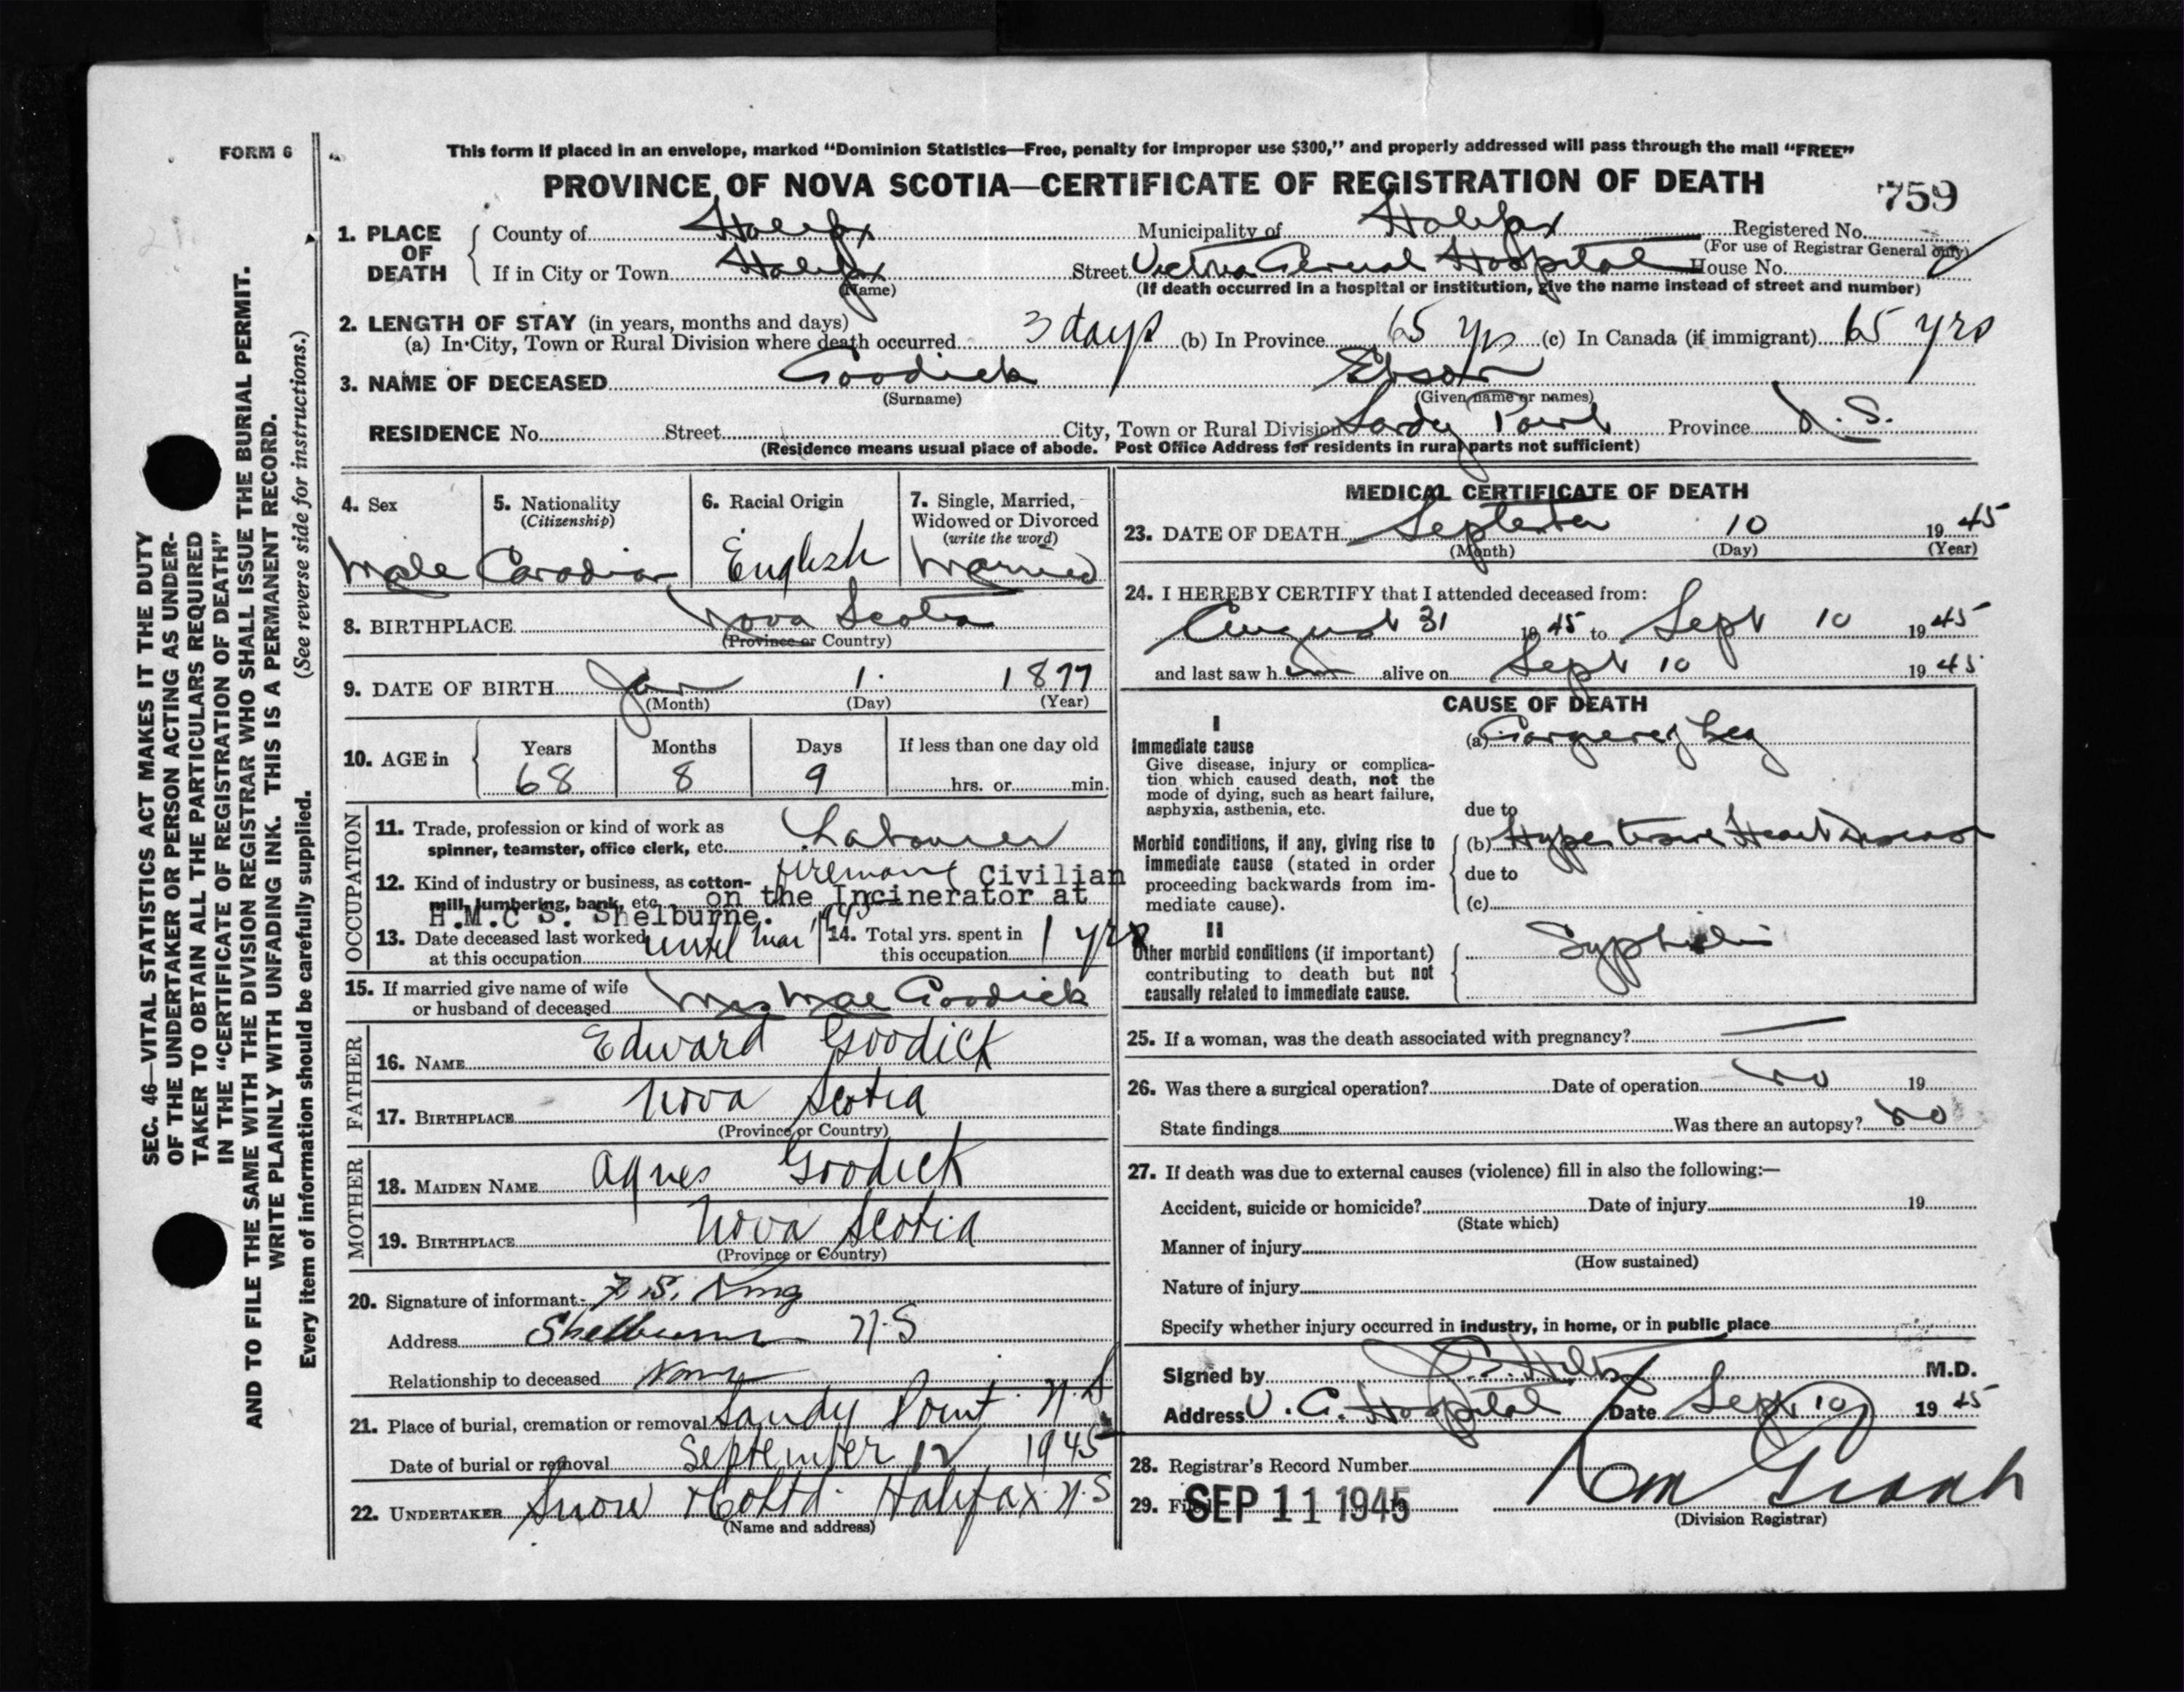 FORM 6
This form if placed in an envelope, marked "Dominion Statistics—Free, penalty for improper use $300," and properly addressed will pass through the mail "FREE"
PROVINCE OF NOVA SCOTIA—CERTIFICATE OF REGISTRATION OF DEATH
759
1. PLACE OF DEATH
County of Halifax Municipality of Halifax Registered No.
(For use of Registrar General only)
If in City or Town Halifax Street Victoria General Hospital House No.
(Name) (If death occurred in a hospital or institution, give the name instead of street and number)
2. LENGTH OF STAY (in years, months and days)
(a) In City, Town or Rural Division where death occurred 3 days (b) In Province 65 yrs (c) In Canada (if immigrant) 65 yrs
3. NAME OF DECEASED Goodick
(Surname) (Given name or names)
RESIDENCE No. Street City, Town or Rural Division Sandy Point Province N.S.
(Residence means usual place of abode. Post Office Address for residents in rural parts not sufficient)
4. Sex
Male
5. Nationality
(Citizenship)
Canadian
6. Racial Origin
English
7. Single, Married,
Widowed or Divorced
(write the word)
Married
8. BIRTHPLACE Nova Scotia
(Province or Country)
9. DATE OF BIRTH Jan 1 1877
(Month) (Day) (Year)
10. AGE in
Years Months Days If less than one day old
68 8 9 hrs. or min.
OCCUPATION
11. Trade, profession or kind of work as
spinner, teamster, office clerk, etc. Labourer
12. Kind of industry or business, as cotton-
mill, lumbering, bank, etc.
fireman Civilian
on the Incinerator at
H.M.C S. Shelburne.
13. Date deceased last worked
at this occupation until Mar 1945
14. Total yrs. spent in
this occupation 1 yrs
15. If married give name of wife
or husband of deceased Mrs Mae Goodick
FATHER
16. NAME Edward Goodick
17. BIRTHPLACE Nova Scotia
(Province or Country)
MOTHER
18. MAIDEN NAME Agnes Goodick
19. BIRTHPLACE Nova Scotia
(Province or Country)
20. Signature of informant: S. King
Address Shelburne N.S
Relationship to deceased None
21. Place of burial, cremation or removal Sandy Point N.S
Date of burial or removal September 12 1945
22. UNDERTAKER Snow & Co Ltd. Halifax N.S
(Name and address)
MEDICAL CERTIFICATE OF DEATH
23. DATE OF DEATH September 10 1945
(Month) (Day) (Year)
24. I HEREBY CERTIFY that I attended deceased from:
August 31 1945 to Sept 10 1945
and last saw him alive on Sept 10 1945
CAUSE OF DEATH
I
Immediate cause
Give disease, injury or complica-
tion which caused death, not the
mode of dying, such as heart failure,
asphyxia, asthenia, etc.
(a) Leg
due to
Morbid conditions, if any, giving rise to
immediate cause (stated in order
proceeding backwards from im-
mediate cause).
(b) Hypertensive Heart Disease
due to
(c)
II
Other morbid conditions (if important)
contributing to death but not
causally related to immediate cause.
Syphilis
25. If a woman, was the death associated with pregnancy?
26. Was there a surgical operation? Date of operation no 19
State findings Was there an autopsy? no
27. If death was due to external causes (violence) fill in also the following:—
Accident, suicide or homicide? Date of injury 19
(State which)
Manner of injury
(How sustained)
Nature of injury
Specify whether injury occurred in industry, in home, or in public place
Signed by M.D.
Address V. G. Hospital Date Sept 10 1945
28. Registrar's Record Number
29. Filed SEP 11 1945
(Division Registrar)
SEC. 46—VITAL STATISTICS ACT MAKES IT THE DUTY
OF THE UNDERTAKER OR PERSON ACTING AS UNDER-
TAKER TO OBTAIN ALL THE PARTICULARS REQUIRED
IN THE "CERTIFICATE OF REGISTRATION OF DEATH"
AND TO FILE THE SAME WITH THE DIVISION REGISTRAR WHO SHALL ISSUE THE BURIAL PERMIT.
WRITE PLAINLY WITH UNFADING INK. THIS IS A PERMANENT RECORD.
Every item of information should be carefully supplied. (See reverse side for instructions.)